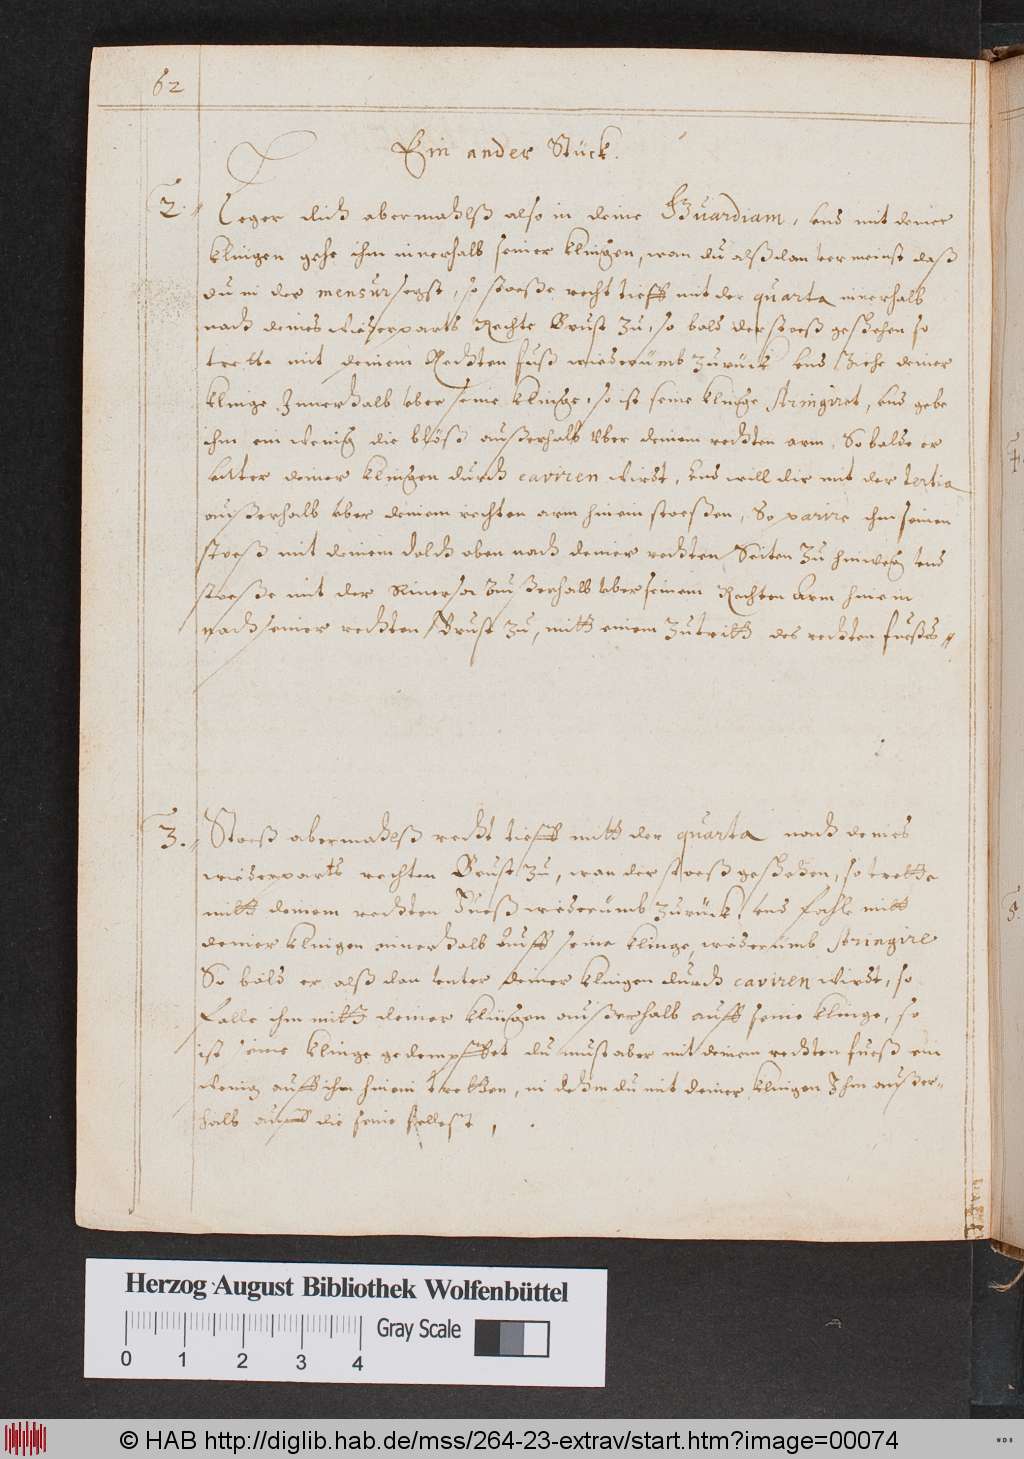 62
Ein ander Stück.
2. Leger dich abermahlß also in deine Guardiam, vnd mit deiner
klingen gehe ihm innerhalb seiner klingen, wan du alßdan vermeinst daß
du in der mensur seyst, so stoeße recht tieff mit der quarta innerhalb
nach deines wiederparts Rechte Brust zu, so bald der stoeß geschehen so
trette mit deinem Rechten fuß wiederümb zurück vnd Ziehe deiner
klinge Innerhalb vber seine klinge, so ist seine klinge stringiret, vnd gebe
ihm ein wenig die blöse außerhalb vber deinem rechten arm, So balde er
vnter deiner klingen durch caviren wirdt, vnd will dir mit der tertia
außerhalb vber deinem rechten arm hinein stoeßen, So parire ihm seinen
stoeß mit deinem dolch oben nach deiner rechten Seiten zu hinweg vnd
stoeße mit der außerhalb vber seinem Rechten Arm hinein
nach seiner rechten Brust zu, mitt einem zutritt des rechten fueßes
3. Stoeß abermahlß recht tieff mitt der quarta nach deines
wiederparts rechten Brust zu, wan der stoeß geschehen, so trette
mitt deinem rechten Fueß wiederümb zurück, vnd fahle mitt
deiner klingen innerhalb auff seine klinge, wiederümb stringire
So bald er alß dan vnter deiner klingen durch caviren wirdt, so
falle ihm mitt deiner klingen außerhalb auff seine klinge, so
ist seine klinge gedempffet du must aber mit deinem rechten fueß ein
wenig auff ihm hinein tretten, in dehm du mit deiner klingen Ihm außer-
halb auff die seine fellest,
Herzog August Bibliothek Wolfenbüttel
Gray Scale
0 1 2 3 4
© HAB http://diglib.hab.de/mss/264-23-extrav/start.htm?image=00074